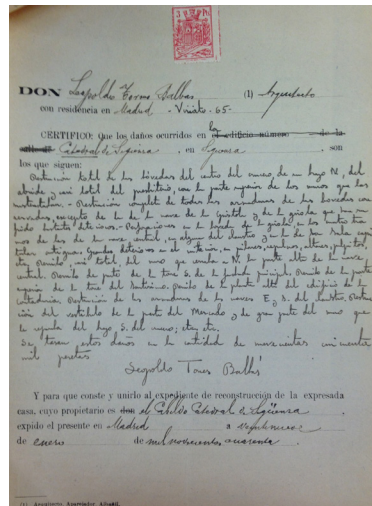 3 PTS
DON Leopoldo Torres Balbás (1) Arquitecto
con residencia en Madrid - Viriato - 65 -
CERTIFICO: Que los daños ocurridos en la edificio número de la
calle de Catedral de Sigüenza, en Sigüenza, son
los que siguen:
Destrucción total de las bóvedas del centro del crucero, de su brazo N., del
ábside y casi total del presbiterio, con la parte superior de los muros que las
sustentaban. - Destrucción completa de todas las armaduras de las bóvedas con
servadas, excepto de la de la nave de la Epístola y de la girola que han su
frido bastantes deterioros. - Perforaciones en la bóveda de la girola, en
de las de la nave central, en alguna del claustro y en la de
. Grandes deterioros en el interior, en pilares, sepulcros, altares, púlpitos,
etc. casi total del muro que cerraba a N. la parte alta de la nave
central. de parte de la torre S. de la fachada principal. de la parte
superior de la torre del Santísimo. de la planta alta del edificio de la
contaduría. Destrucción de las armaduras de las naves E. y S. del claustro. Destruc
ción del vestíbulo de la puerta del Mercado y de gran parte del muro que
la del brazo S. del crucero; etc, etc.
Se tasan estos daños en la cantidad de novecientas cincuenta
mil pesetas
Leopoldo Torres Balbás
Y para que conste y unirlo al expediente de reconstrucción de la expresada
casa, cuyo propietario es don el Cabildo Catedral de Sigüenza
expido el presente en Madrid a veintinueve
de enero de mil novecientos cuarenta.
(1) Arquitecto, Aparejador, Albañil.